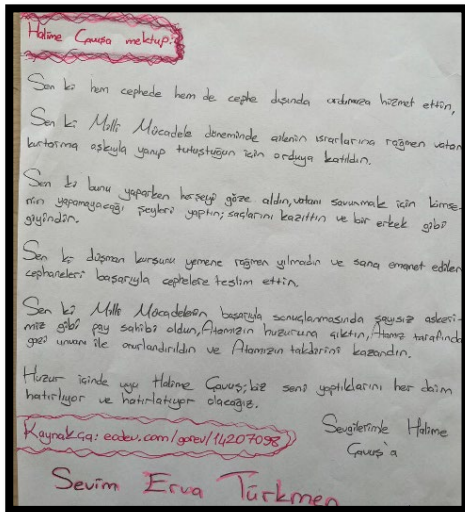 Halime Çavuşa mektup:
Sen ki hem cephede hem de cephe dışında ordumuza hizmet ettin,
Sen ki Milli Mücadele döneminde ailenin ısrarlarına rağmen vatan
kurtarma aşkıyla yanıp tutuştuğun için orduya katıldın.
Sen ki bunu yaparken herşeyi göze aldın, vatanı savunmak için kimse-
nin yapamayacağı şeyleri yaptın; saçlarını kazıttın ve bir erkek gibi
giyindin.
Sen ki düşman kurşunu yemene rağmen yılmadın ve sana emanet edilen
cephaneleri başarıyla cephelere teslim ettin.
Sen ki Milli Mücadelenin başarıyla sonuçlanmasında sayısız askeri-
miz gibi pay sahibi oldun, Atamızın huzuruna çıktın, Atamız tarafında
gazi unvanı ile onurlandırıldın ve Atamızın takdirini kazandın.
Huzur içinde uyu Halime Çavuş; biz seni yaptıklarını her daim
hatırlıyor ve hatırlatıyor olacağız.
Kaynakça: eodev.com/gorev/14207098
Sevgilerimle Halime
Çavuş'a
Sevim Erva Türkmen